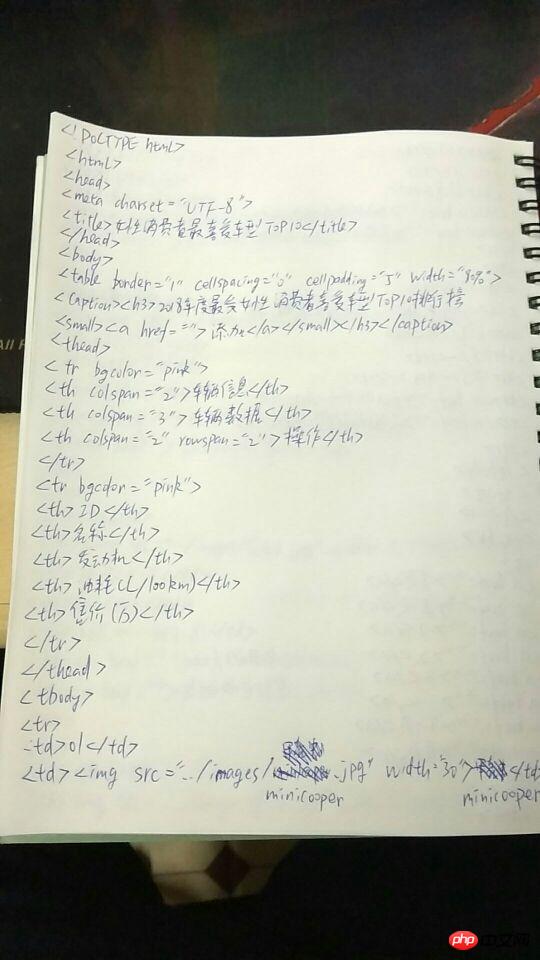 <!DOCTYPE html>
<html>
<head>
<meta charset="UTF-8">
<title>女性消费者最喜爱车型TOP10</title>
</head>
<body>
<table border="1" cellspacing="0" cellpadding="5" width="80%">
<caption><h3>2018年度最受女性消费者喜爱车型TOP10排行榜
<small><a href="">添加</a></small></h3></caption>
<thead>
<tr bgcolor="pink">
<th colspan="2">车辆信息</th>
<th colspan="3">车辆数据</th>
<th colspan="2" rowspan="2">操作</th>
</tr>
<tr bgcolor="pink">
<th>ID</th>
<th>名称</th>
<th>发动机</th>
<th>油耗(L/100km)</th>
<th>售价(万)</th>
</tr>
</thead>
<tbody>
<tr>
<td>01</td>
<td><img src="../images/minicooper.jpg" width="30">minicooper</td
All
php中文网